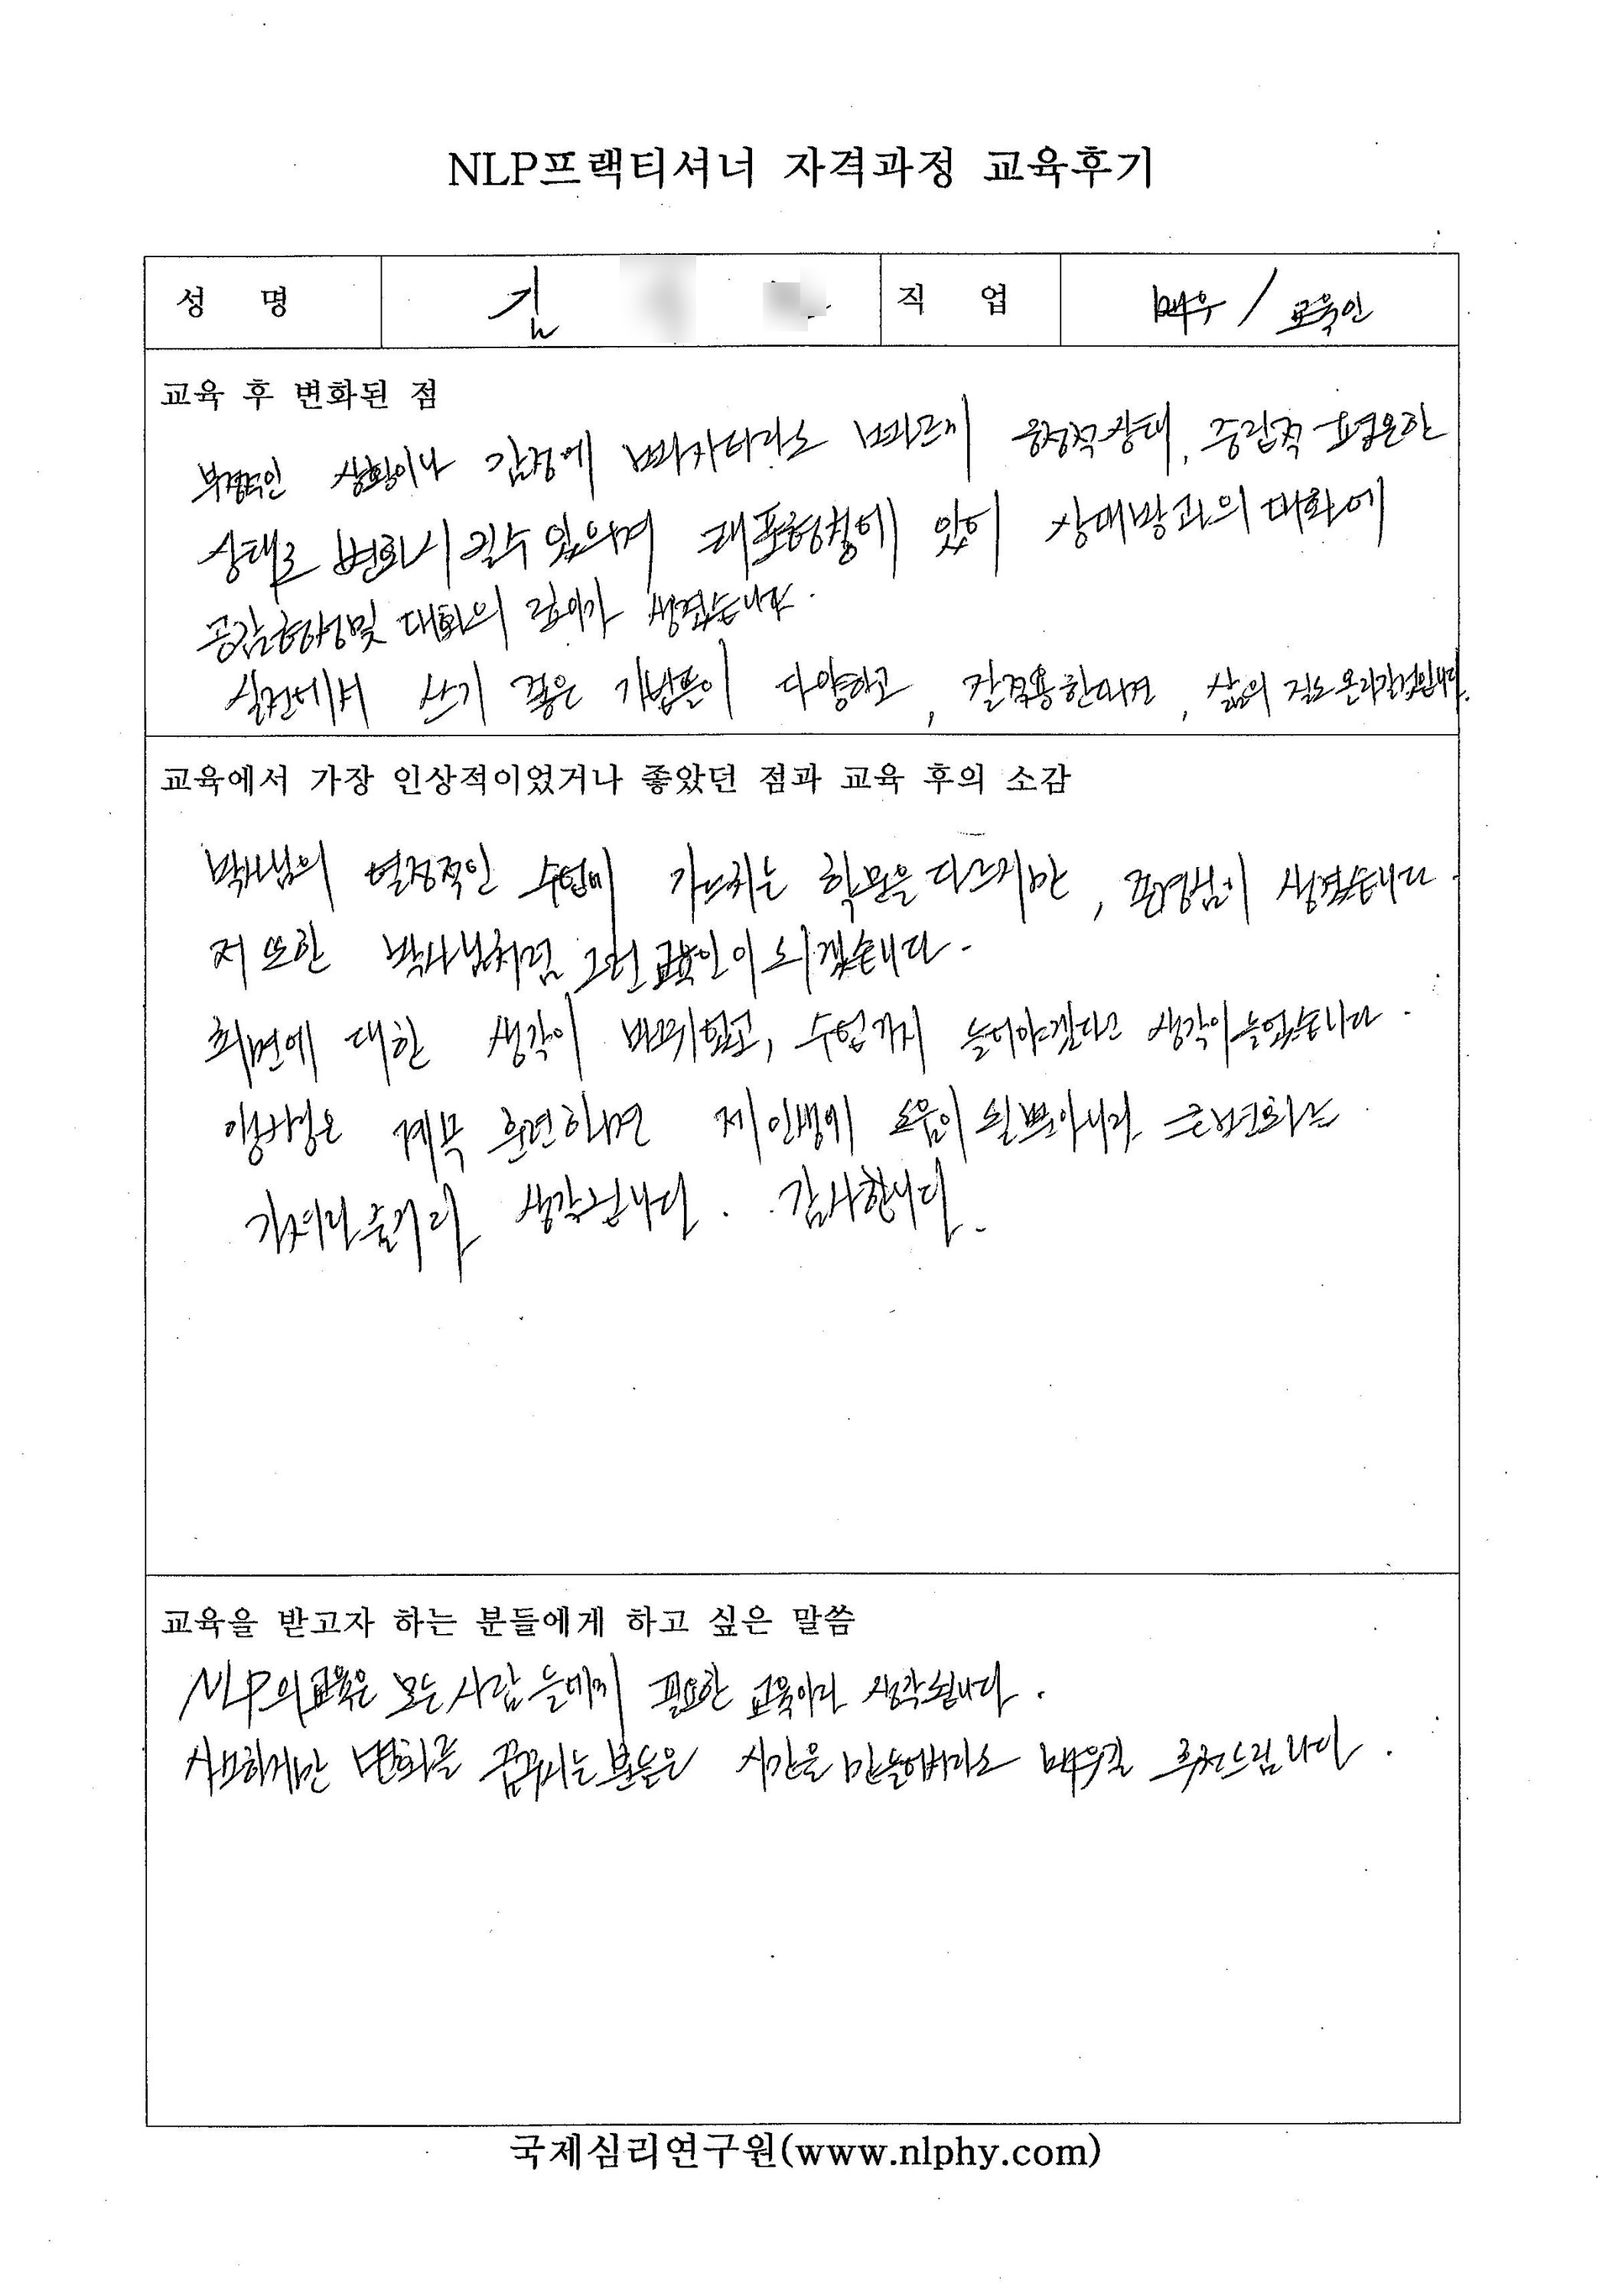 NLP프랙티셔너 자격과정 교육후기
성 명 김 직 업 배우 / 교육인
교육 후 변화된 점
부정적인 상황이나 감정에 빠지더라도 빠르게 긍정적 상태, 중립적 평온한
상태로 변화시킬수 있으며 라포형성에 있어 상대방과의 대화에
공감형성및 대화의 깊이가 생겼습니다.
실전에서 쓰기 좋은 기법들이 다양하고, 잘적용한다면, 삶의 질도 올라갈것입니다.
교육에서 가장 인상적이었거나 좋았던 점과 교육 후의 소감
박사님의 열정적인 수업에 가르치는 학문은 다르지만, 존경심이 생겼습니다.
저 또한 박사님처럼 그런 교육인이 되겠습니다.
최면에 대한 생각이 바뀌었고, 수업까지 들어야겠다고 생각이 들었습니다.
계속 훈련하면 제 인생에 도움이 될뿐아니라 큰변화를
가져다 줄거라 생각됩니다. 감사합니다.
교육을 받고자 하는 분들에게 하고 싶은 말씀
NLP의 교육은 모든 사람들에게 필요한 교육이라 생각됩니다.
변화를 꿈꾸시는 분들은 시간을 만들어서라도 배우길 추천드립니다.
국제심리연구원(www.nlphy.com)